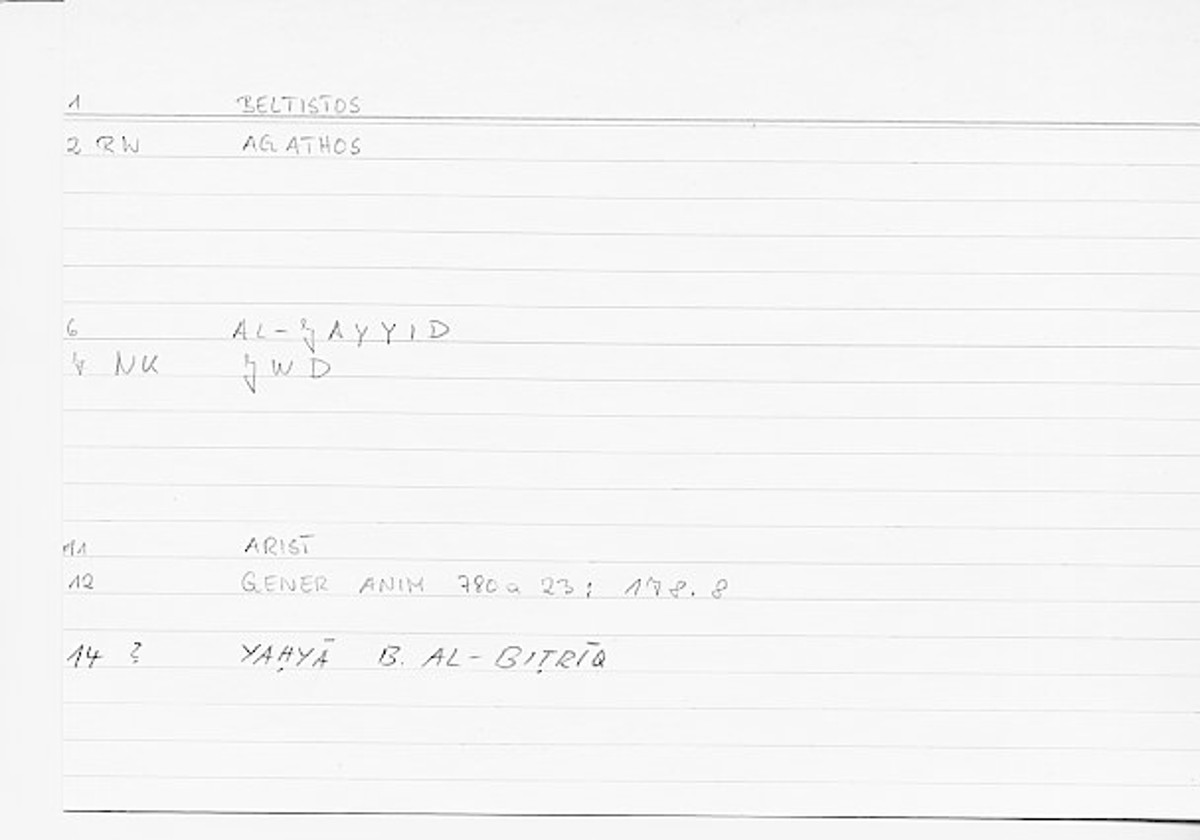 1 BELTISTOS
2 RW AGATHOS
6 AL-ǧAYYID
NK ǧWD
11 ARIST
12 GENER ANIM 780a 23; 178.8
14 ? YAḤYĀ B. AL-BIṬRĪQ